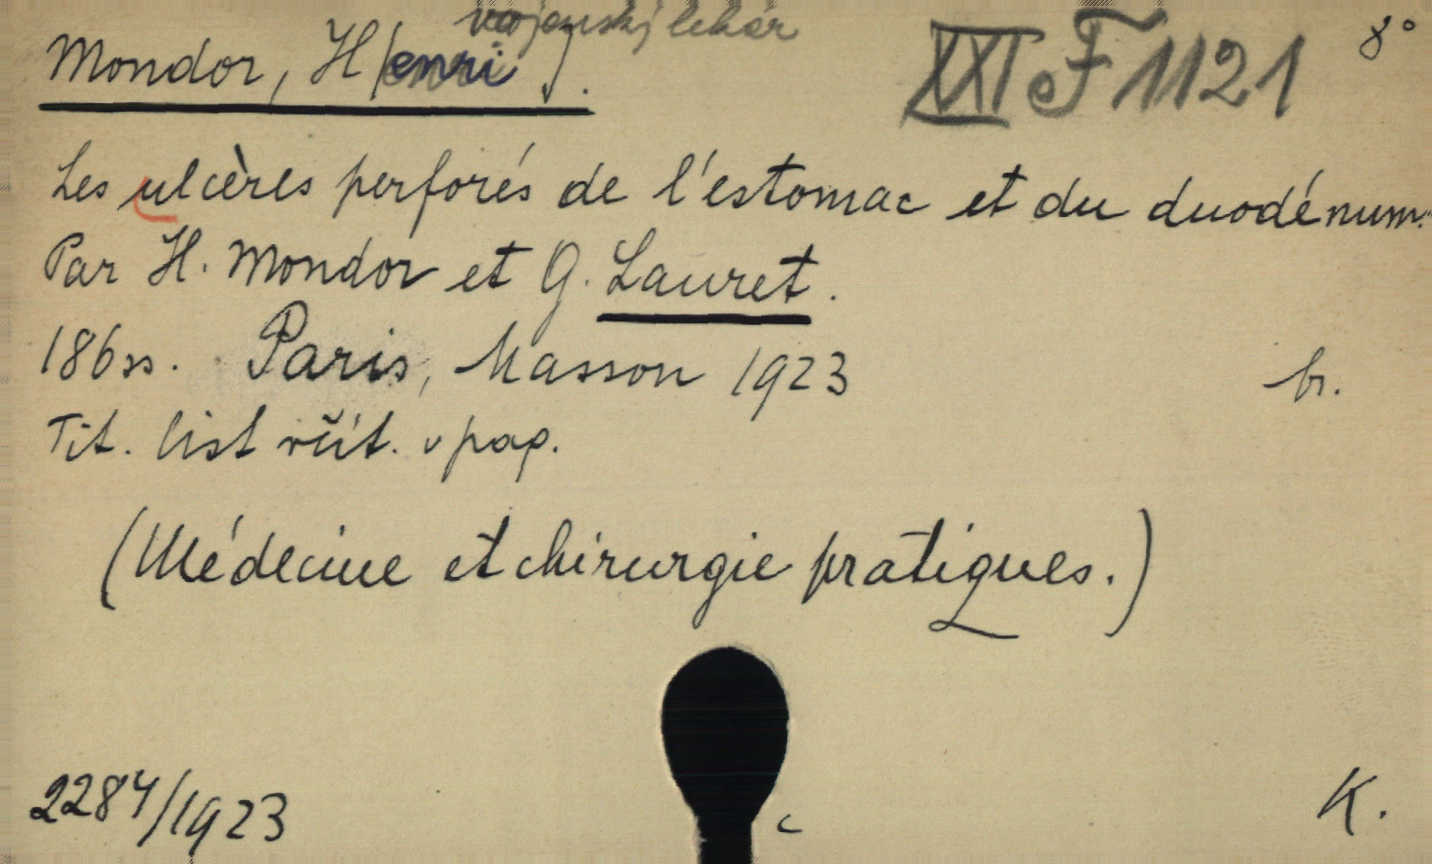 vojenský lékař
Mondor, H[enri].
XXI F 1121
8°
Les ulcères perforés de l'estomac et du duodénum.
Par H. Mondor et G. Lauret.
186 ss. Paris, Masson 1923
br.
Tit. list včít. v pag.
(Médecine et chirurgie pratiques.)
2284/1923
c
K.